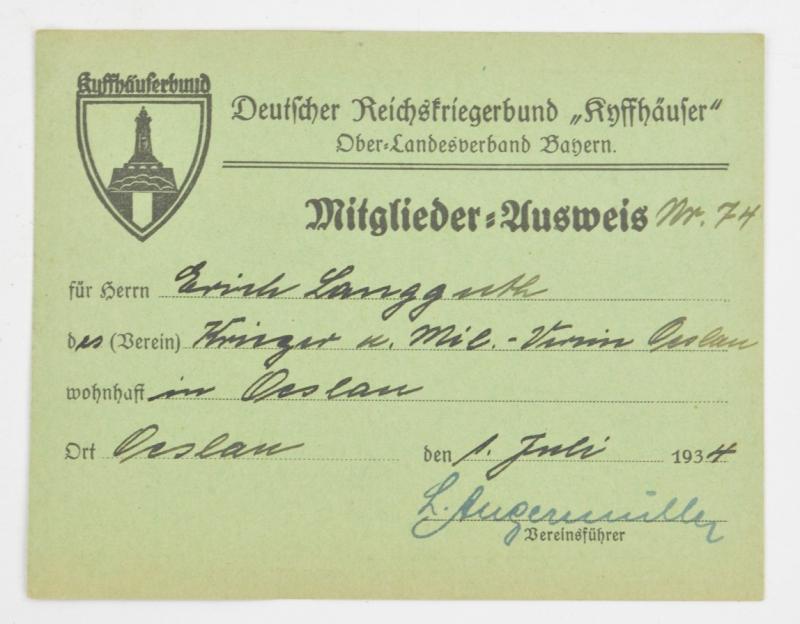 Kyffhäuserbund
Deutscher Reichskriegerbund „Kyffhäuser“
Ober-Landesverband Bayern.
Mitglieder-Ausweis Nr. 74
für Herrn Erich Langguth
des (Verein) Krieger u. Mil.-Verein Oeslau
wohnhaft in Oeslau
Ort Oeslau den 1. Juli 1934
L. Angermüller
Vereinsführer